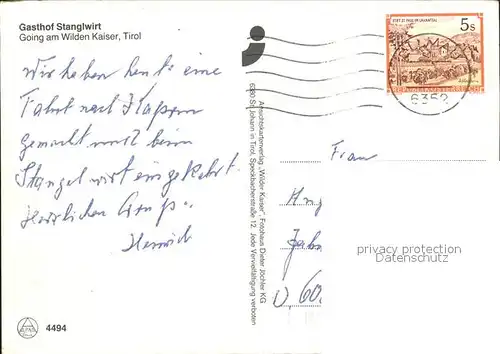 Gasthof Stanglwirt
Going am Wilden Kaiser, Tirol
Wir haben heute eine
Fahrt nach
gemacht und beim
Stangelwirt eingekehrt
Herzlichen Gruß
Heinrich
4494
Ansichtskartenverlag „Wilder Kaiser", Fotohaus Dieter Jöchler KG
6380 St. Johann in Tirol, Speckbacherstraße 12, Jede Vervielfältigung verboten
STIFT ST. PAUL IM LAVANTTAL
5 S
REPUBLIK ÖSTERREICH
6352
Frau
privacy protection
Datenschutz